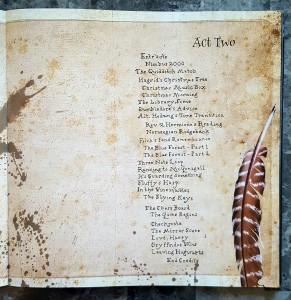 Act Two
Entr'acte
Nimbus 2000
The Quidditch Match
Hagrid's Christmas Tree
Christmas Music Box
Christmas Morning
The Library Scene
Dumbledore's Advice
Alt. Hedwig's Time Transition
Ron & Hermione's Reading
Norwegian Ridgeback
Filch's Fond Remembrance
The Blue Forest - Part 1
The Blue Forest - Part 2
Three Note Loop
Running to McGonagall
It's Guarding Something
Fluffy's Harp
In the Vines
The Flying Keys
The Chess Board
The Game Begins
Checkmate
The Mirror Scene
Love, Harry
Gryffindor Wins
Leaving Hogwarts
End Credits